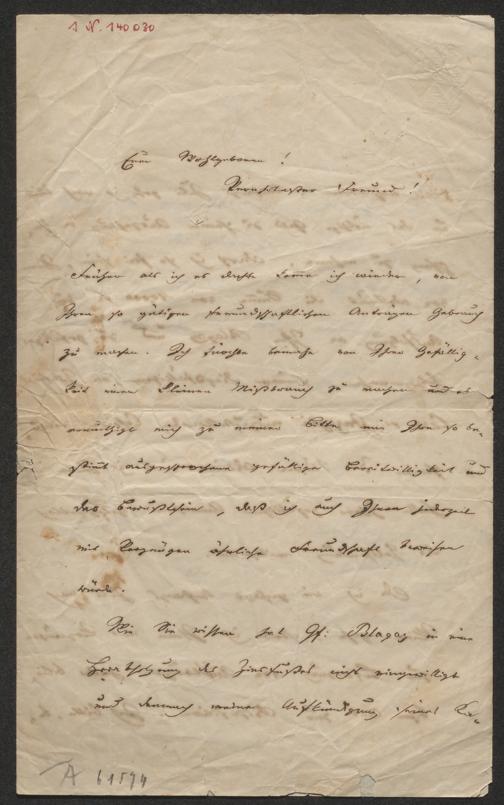 I N. 140030
Euer Wohlgeboren!
Verehrtester Freund!
Früher als ich es dachte komme ich wieder, von
Ihren so gütigen freundschaftlichen Anträgen Gebrauch
zu machen. Ich fürchte beinahe von Ihrer Gefällig-
keit einen kleinen Mißbrauch zu machen und es
ermuthigt mich zu meiner Bitte nur Ihre so be-
stimmt ausgesprochene gefällige Bereitwilligkeit und
das Bewußtsein, daß ich auch Ihnen jederzeit
mit Vergnügen ähnliche Freundschaft beweisen
würde.
Wie Sie wissen hat Gf: Blagay in eine
Herabsetzung des Zinsfußes nicht eingewilligt
und demnach meine Aufkündigung seines Ka-
A 61594